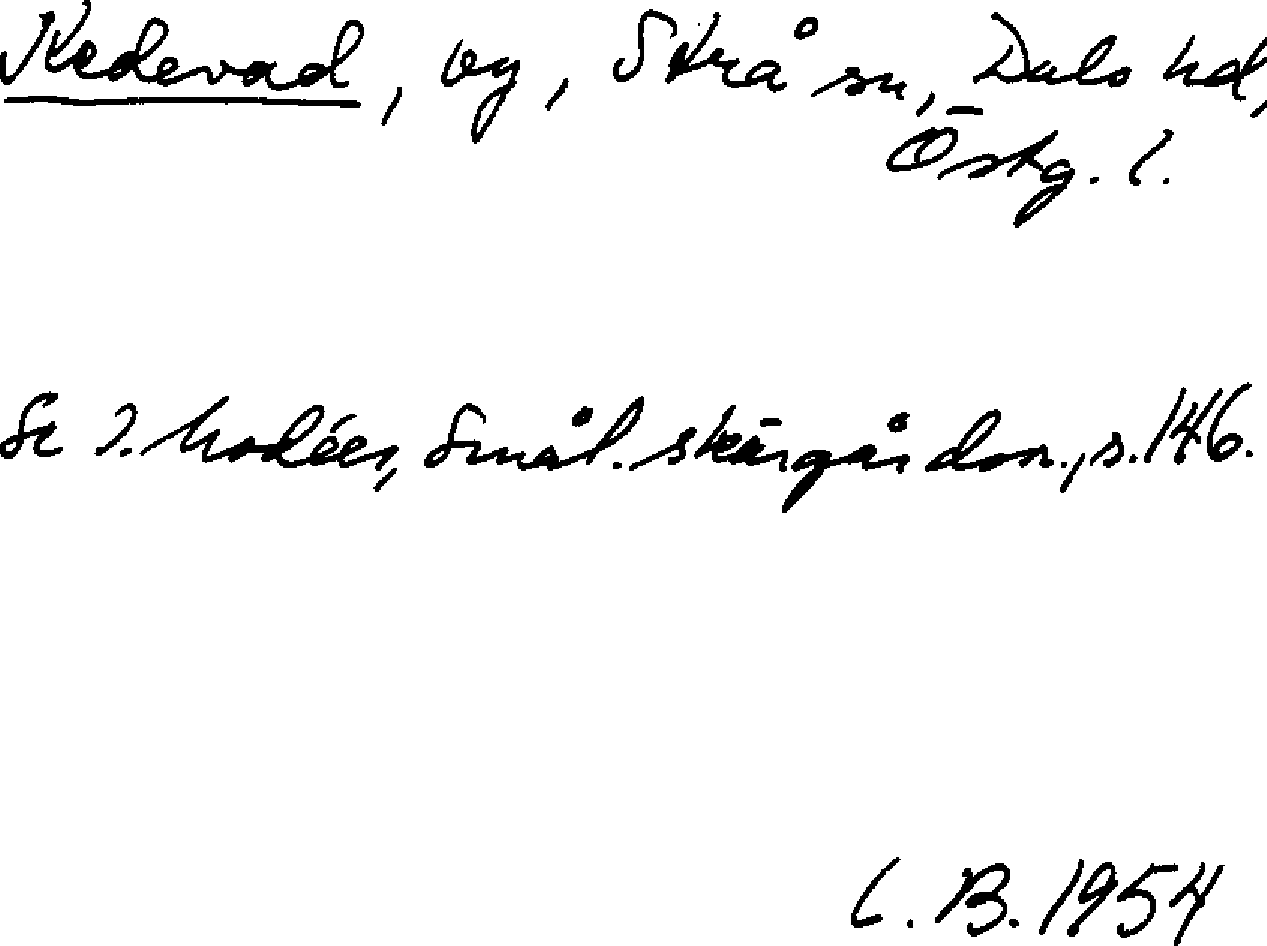 Kedevad, by, Strå sn, Dals hd,
Östg. l.
Se I. Modéer, Smål. skärgårdsn., s. 146.
C. B. 1954